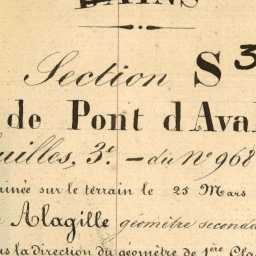 BAINS
Section S 3
de Pont d'Ava
uilles, 3e. — du No 968
inée sur le terrain le 25 Mars
Alagille géomètre seconda
us la direction du géomètre de 1ère Cla